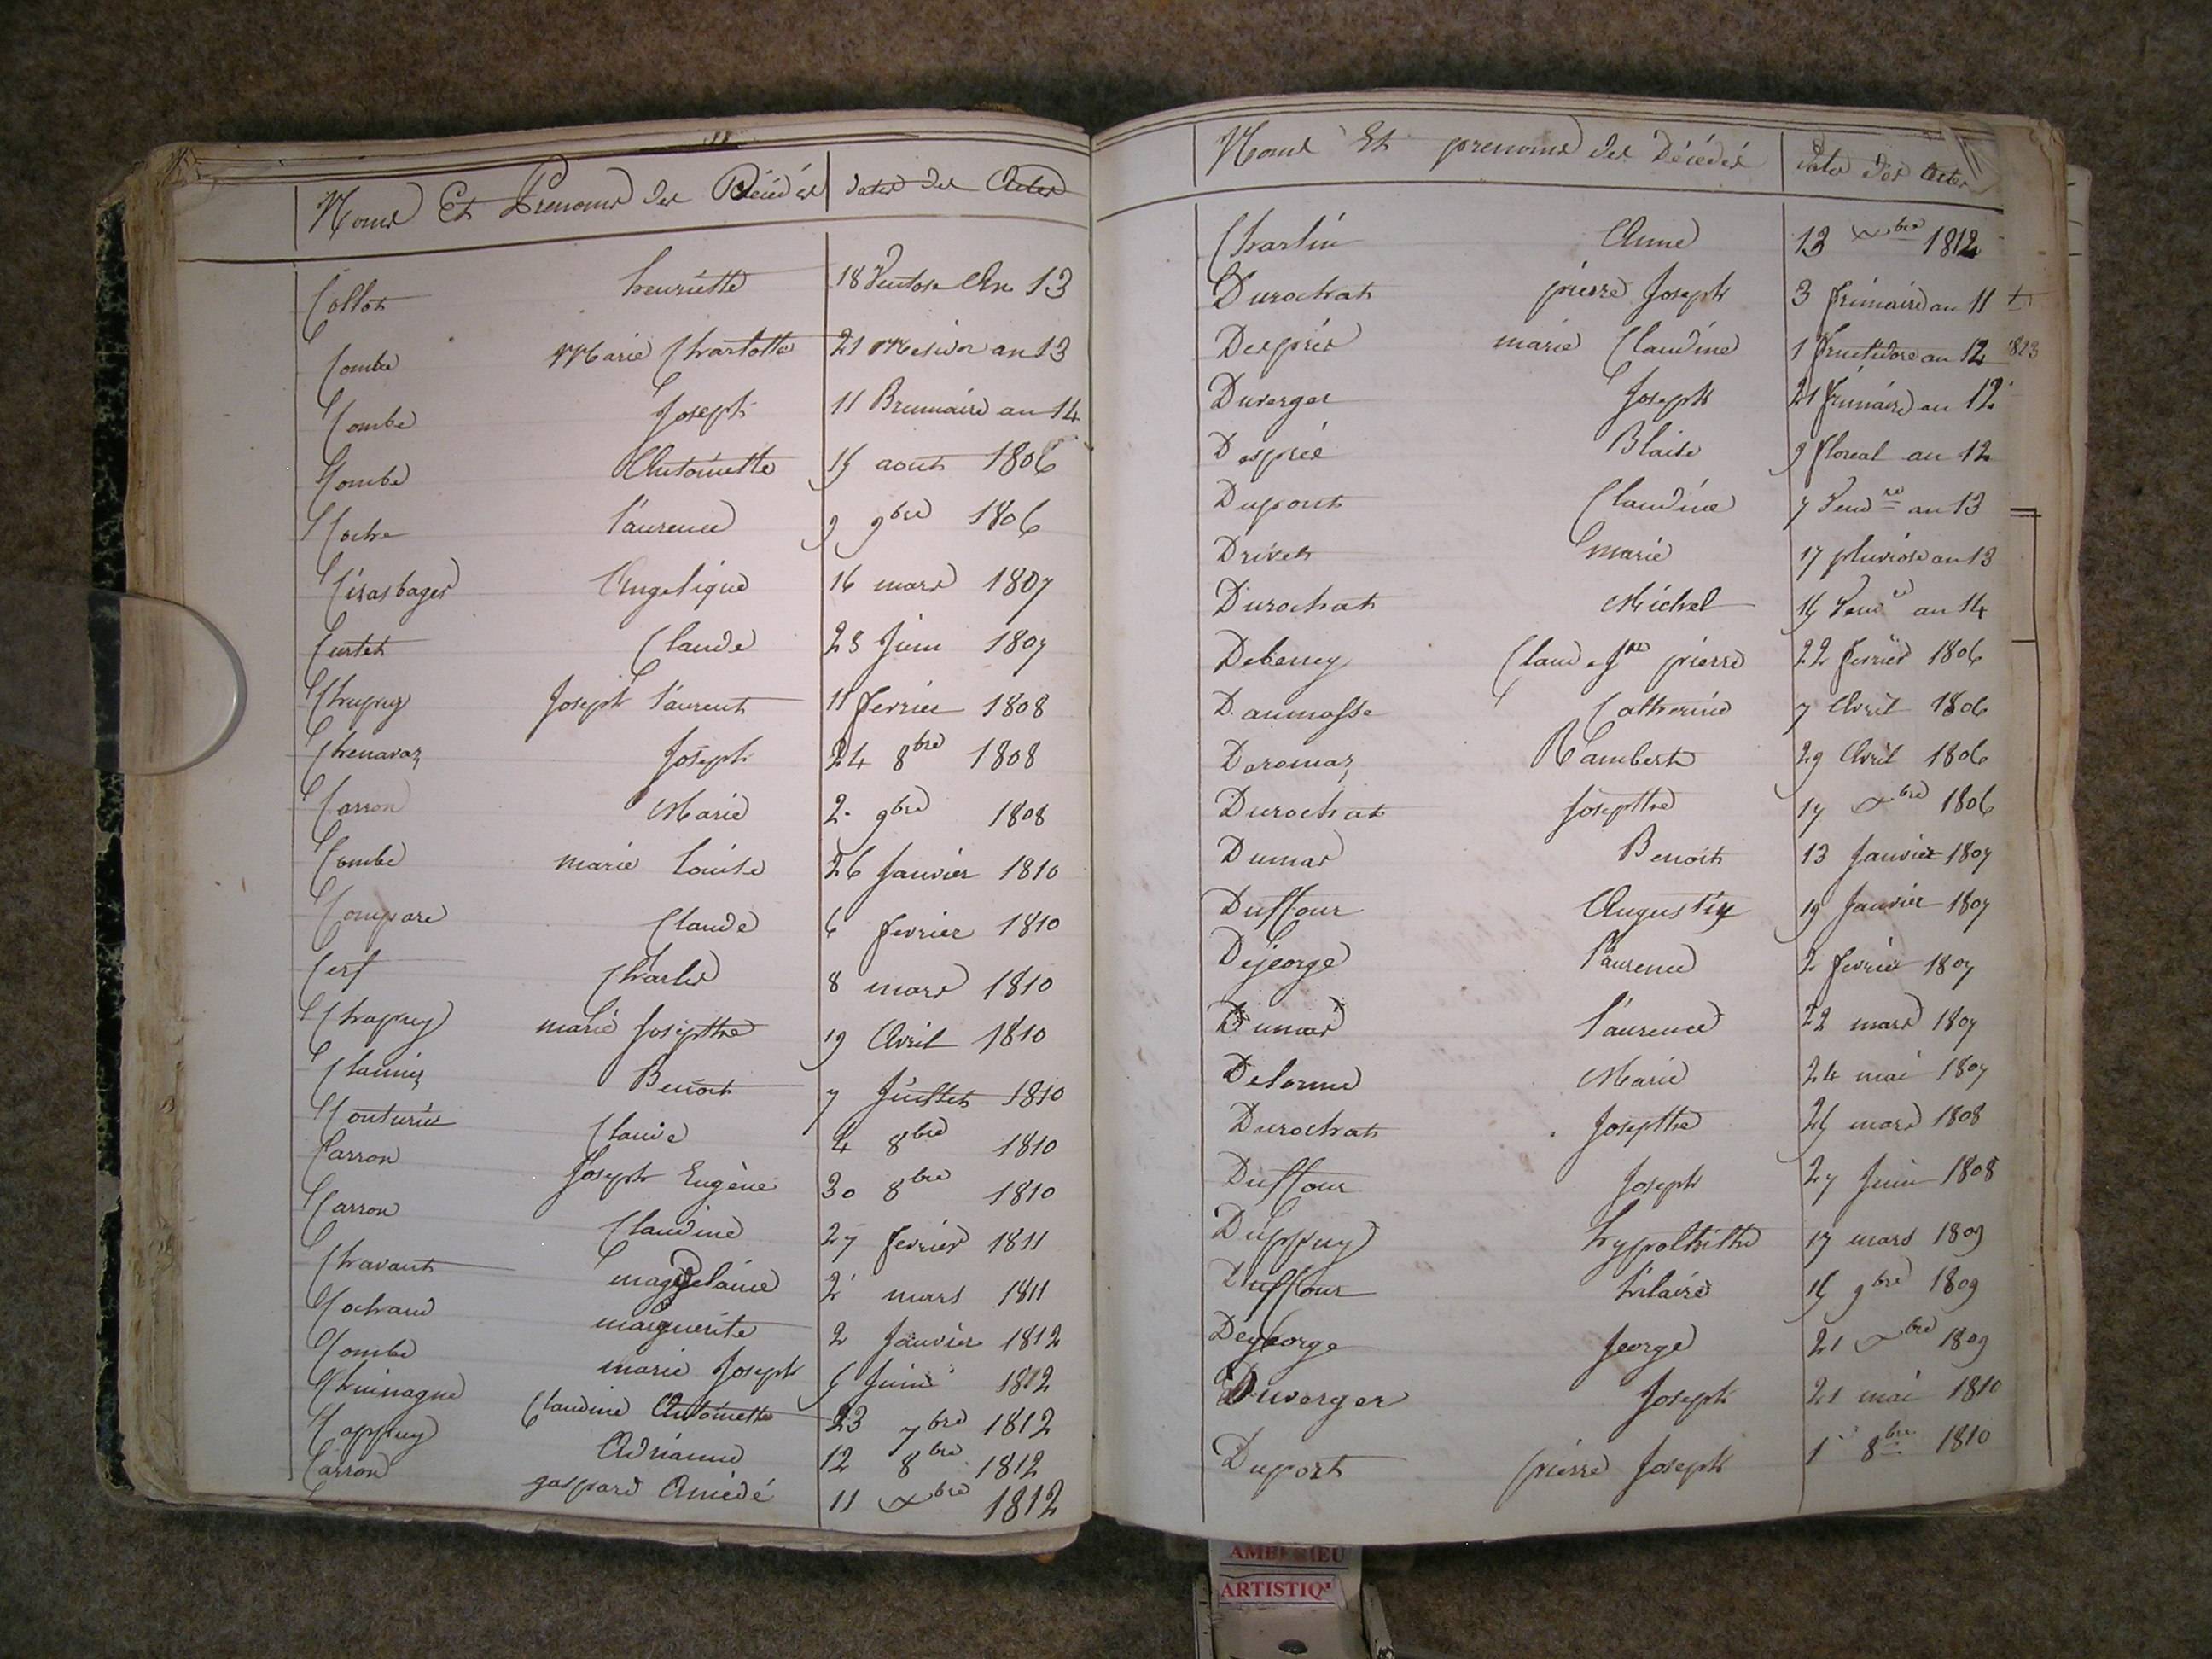 Noms Et Prenoms des Décédés dates des Actes
Collot henriette 18 Ventose An 13
Combe Marie Charlotte 21 Messidor an 13
Combe Joseph 11 Brumaire an 14
Combe Antoinette 15 aout 1806
Coche Laurence 9 9bre 1806
Angelique 16 mars 1807
Curtet Claude 23 Juin 1807
Chapuy Joseph Laurent 11 fevrier 1808
Chenavaz Joseph 24 8bre 1808
Carron Marie 2 9bre 1808
Combe marie Louise 26 Janvier 1810
Compare Claude 6 fevrier 1810
Cerf Charles 8 mars 1810
Chapuy marie Josepthe 19 Avril 1810
Benoit 7 Juillet 1810
Couturier Claude 4 8bre 1810
Carron Joseph Eugène 30 8bre 1810
Carron Claudine 27 fevrier 1811
Chavant magdelaine 2 mars 1811
Cochaud marguerite 2 Janvier 1812
Combe marie Joseph 5 Juin 1812
Claudine Antoinette 23 7bre 1812
Cappuy Adrianne 12 8bre 1812
Carron gaspard Amédé 11 xbre 1812
Noms Et prenoms des Décédés dates des Actes
Charlin Anne 13 xbre 1812
Durochat pierre Joseph 3 frimaire an 11
Després marie Claudine 1 fructidore an 12 1823
Duverger Joseph 21 frimaire an 12
Desprié Blaise 9 floreal an 12
Dupont Claudine 7 Vendre an 13
Drivet marie 17 pluviose an 13
Durochat Michel 15 Vendre an 14
Debeney Claude Jne pierre 22 fevrier 1806
Daumasse Catherine 7 Avril 1806
Doromaz Rambert 29 Avril 1806
Durochat Josepthe 17 xbre 1806
Dumas Benoit 13 Janvier 1807
Duffour Augustin 19 Janvier 1807
Dejeorge Laurence 2 fevrier 1807
Dumas Laurence 22 mars 1807
Delorme Marie 24 mai 1807
Durochat Josepthe 25 mars 1808
Duffour Joseph 27 Juin 1808
Duppuy hypolhithe 17 mars 1809
Duffour hilaire 15 9bre 1809
Dejeorge Jeorge 21 xbre 1809
Duverger Joseph 21 mai 1810
Duport pierre Joseph 1 8bre 1810
AMBERIEU
ARTISTIQ